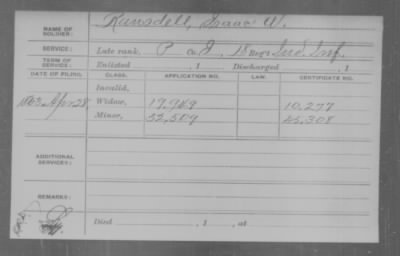 NAME OF SOLDIER: Ransdell, Isaac W.
SERVICE: Late rank, P Co. I, 18 Reg't Ind. Inf.
TERM OF SERVICE: Enlisted , 1 Discharged , 1
DATE OF FILING. CLASS. APPLICATION NO. LAW. CERTIFICATE NO.
Invalid,
1863, Apr 28 Widow, 17,969 10,277
Minor, 32,509 45,308
ADDITIONAL SERVICES:
REMARKS:
Died , 1 , at